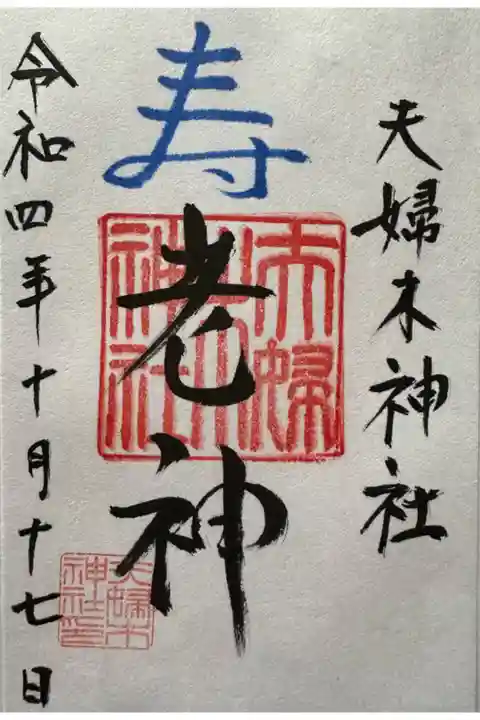 夫婦木神社
寿老神
夫婦木神社
令和四年十月十七日
夫婦木神社印